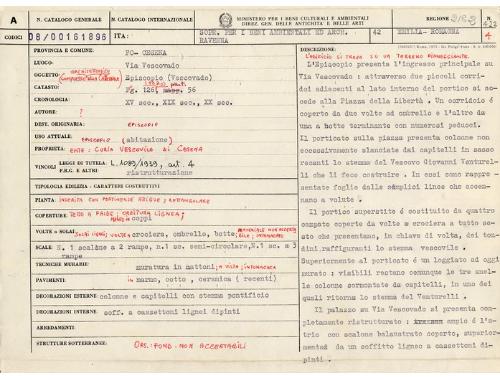 A
N. CATALOGO GENERALE
N. CATALOGO INTERNAZIONALE
MINISTERO PER I BENI CULTURALI E AMBIENTALI
DIREZ. GEN. DELLE ANTICHITÀ E BELLE ARTI
REGIONE
N.
CODICI
08/00161896
ITA:
SOPR. PER I BENI AMBIENTALI ED ARCH.
RAVENNA
42
EMILIA- ROMAGNA
4
PROVINCIA E COMUNE:
FO- CESENA
LUOGO:
Via Vescovado
OGGETTO:
Episcopio (Vescovado)
CATASTO:
Fg. 126, 56
CRONOLOGIA:
XV sec, XIX sec, XX sec.
AUTORE:
?
DEST. ORIGINARIA:
EPISCOPIO
USO ATTUALE:
EPISCOPIO (abitazione)
PROPRIETÀ:
ENTE: CURIA VESCOVILE DI CESENA
VINCOLI
LEGGI DI TUTELA:
L. 1089/1939, art. 4
P.R.G. E ALTRI
ristrutturazione
TIPOLOGIA EDILIZIA - CARATTERI COSTRUTTIVI
PIANTA:
INSERITA CON PERTINENZE ESIGUE; RETTANGOLARE
COPERTURE:
TETTO A FALDE; ORDITURA LIGNEA;
coppi
VOLTE o SOLAI:
SOLAI LIGNEI; VOLTE A
crociera, ombrello, botte;
SCALE:
N. 1 scalone a 2 rampe, n.1 sc. semi-circolare, N.1 sc. a 3
rampe
TECNICHE MURARIE:
muratura in mattoni
A VISTA; INTONACATA
PAVIMENTI:
in marmo, cotto, ceramica (recenti)
DECORAZIONI ESTERNE:
colonne e capitelli con stemma pontificio
DECORAZIONI INTERNE:
soff. a cassettoni lignei dipinti
ARREDAMENTI:
STRUTTURE SOTTERRANEE:
OSS: FOND. NON ACCERTABILI
DESCRIZIONE:
L'EDIFICIO SI TROVA SU UN TERRENO PIANEGGIANTE.
L'Episcopio presenta l'ingresso principale su
Via Vescovado : attraverso due piccoli corri
doi adiacenti al lato interno del portico si ac
cede alla Piazza della Libertà. Un corridoio è
coperto da due volte ad ombrello e l'altro da
una a botte terminante con numerosi peducci.
Il porticato sulla piazza presenta colonne non
eccessivamente slanciate dai capitelli in sasso
recanti lo stemma del Vescovo Giovanni Venturel
li che li fece costruire . In essi sono rappre
sentate foglie dalle semplici linee che accen
nano a volute .
Il portico superstite è costituito da quattro
campate coperte da volte a crociera a tutto se
sto che presentano, in chiave di volta, dei ton
doni, raffiguranti lo stemma vescovile.
Superiormente al portico è un loggiato ad oggi
murato : visibili restano comunque le tre snel
le colonne sormontate da capitelli, in uno dei
quali ritorna lo stemma del Venturelli .
Il palazzo su Via Vescovado si presenta com
pletamente ristrutturato : ampio è l'a
trio con scalone balaustrato coperto, superior
mente, da un soffitto ligneo a cassettoni di
pinti .